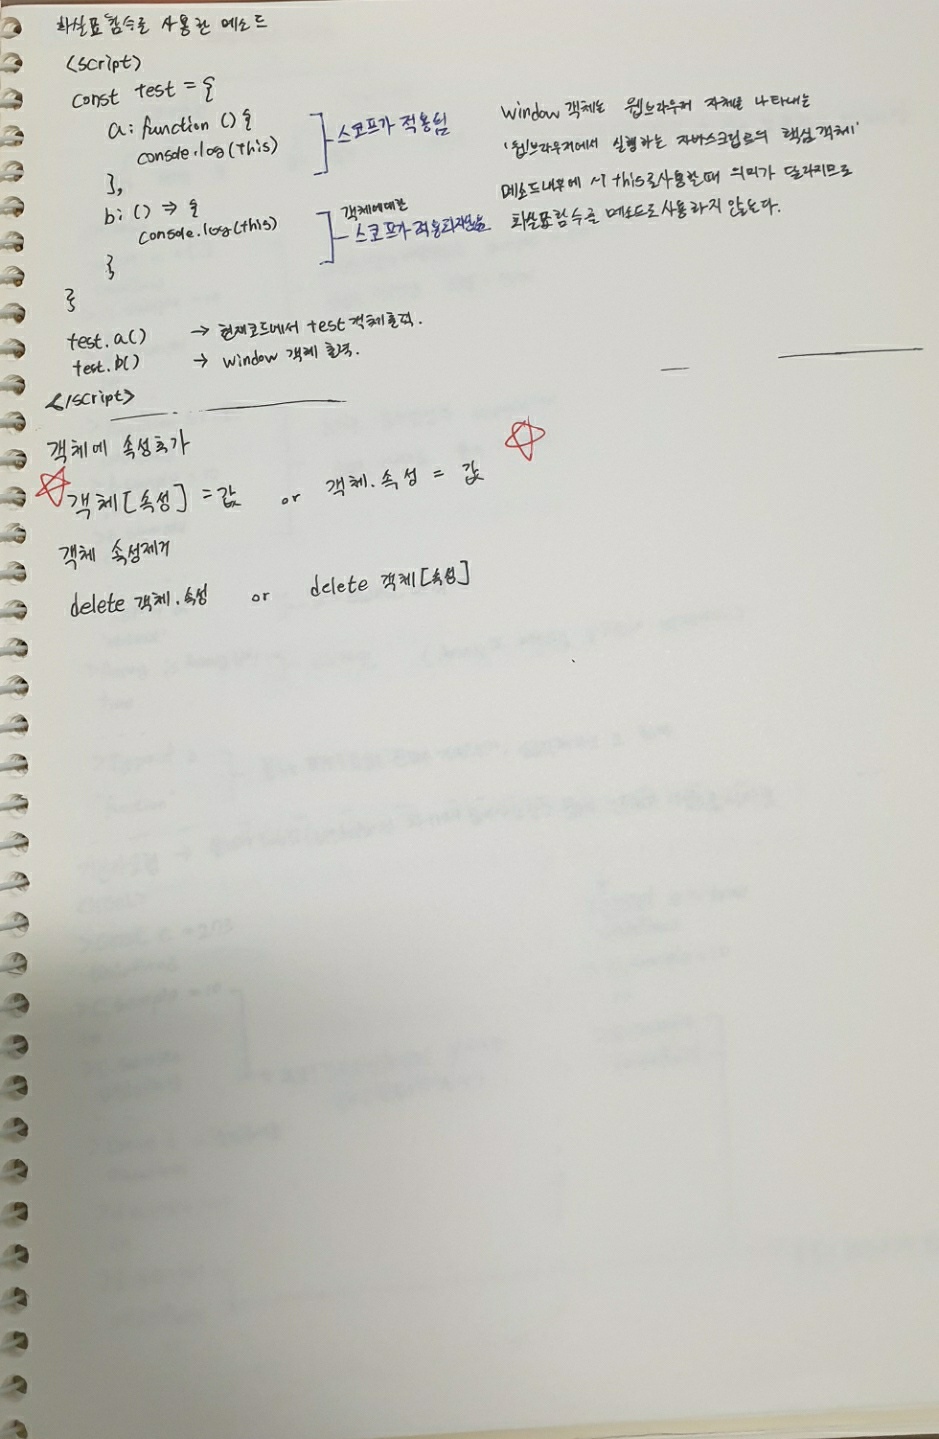 화살표함수로 사용한 메소드
<script>
const test = {
a: function () {
console.log(this)
},
스코프가 적용됨
b: () => {
console.log(this)
}
객체에대한
스코프가 적용되지않음
}
test.a() → 현재코드에서 test 객체출력.
test.b() → window 객체 출력.
</script>
window 객체는 웹브라우저 자체를 나타내는
'웹브라우저에서 실행하는 자바스크립트의 핵심객체'
메소드내부에서 this로사용할때 의미가 달라지므로
화살표함수를 메소드로 사용하지 않는다.
객체에 속성추가
객체[속성] = 값 or 객체.속성 = 값
객체 속성제거
delete 객체.속성 or delete 객체[속성]